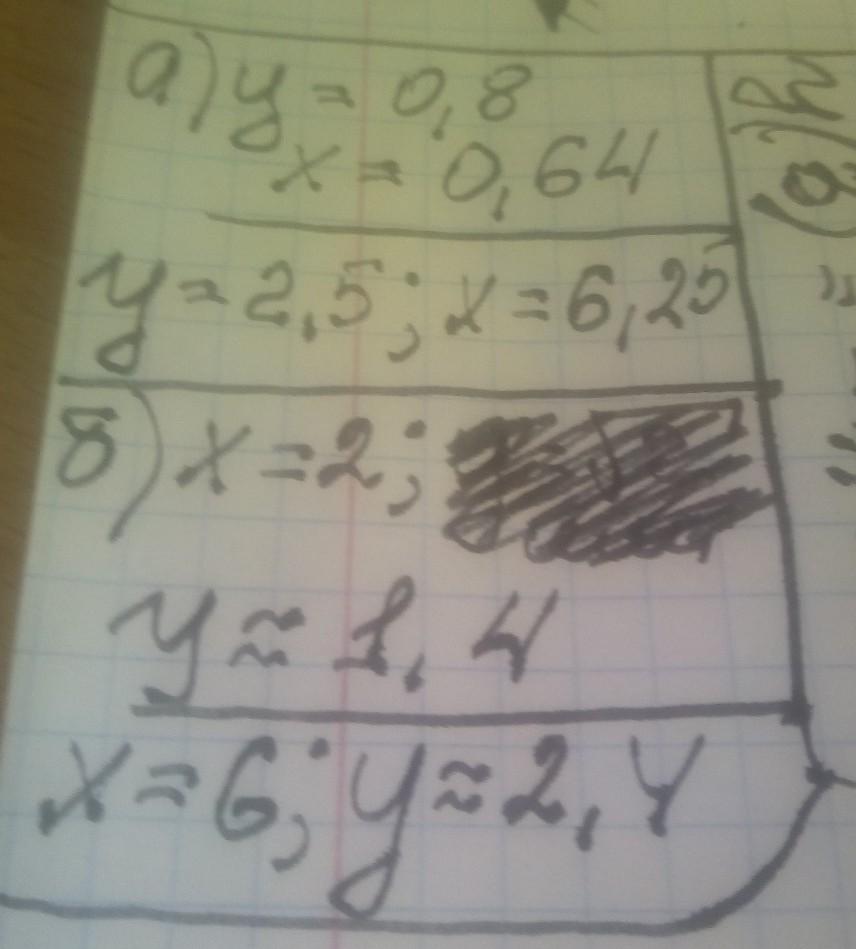 а) y = 0,8
x = 0,64
y = 2,5; x = 6,25
б) x = 2;
y ≈ 1,4
x = 6; y ≈ 2,4